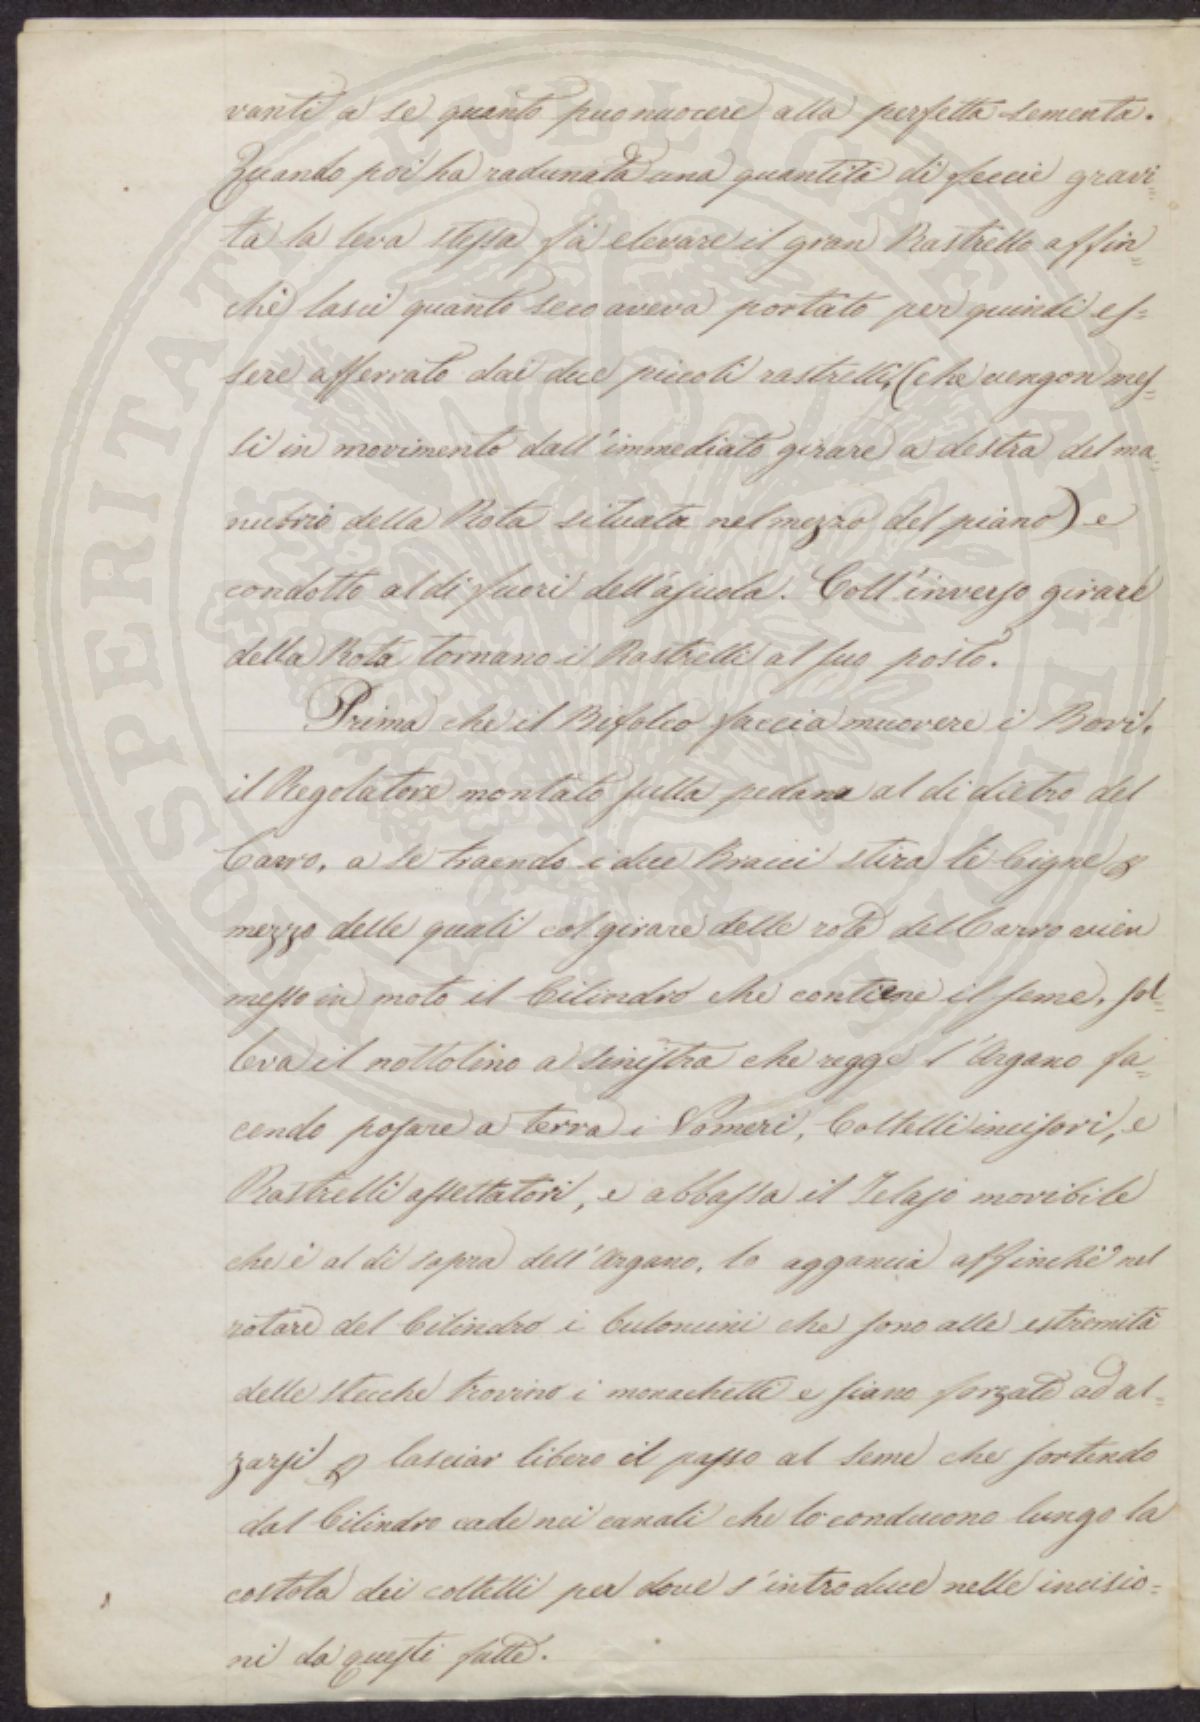 vanti a se quanto puo nuocere alla perfetta sementa.
Quando poi ha radunata una quantità di feccie gravi=
ta la leva stessa fà elevare il gran Rastrello affin=
chè lasci quanto seco aveva portato per quindi es=
sere afferrato dai due piccoli rastrelli, (che vengon mes=
si in movimento dall'immediato girare a destra del ma=
nubrio della Rota situata nel mezzo del piano) e
condotto al di fuori dell'ajuola. Coll'inverso girare
della Rota tornano i Rastrelli al suo posto.
Prima che il Bifolco faccia muovere i Bovi,
il Regolatore montato sulla pedana al di dietro del
Carro, a se traendo i due Bracci stira le Cigne p
mezzo delle quali col girare delle rote del Carro vien
messo in moto il Cilindro che contiene il seme, sol=
leva il nottolino a sinistra che regge l'Argano fa=
cendo posare a terra i Vomeri, Coltelli incisori, e
Rastrelli assettatori, e abbassa il Telajo movibile
che è al di sopra dell'Argano, lo aggancia affinchè nel
rotare del Cilindro i Culoncini che sono alle estremità
delle stecche trovino i monachetti e siano forzate ad al=
zarsi p lasciar libero il passo al seme che sortendo
dal Cilindro cade nei canali che lo conducono lungo la
costola dei coltelli per dove s'introduce nelle incisio=
ni da questi fatte.
PROSPERITATI PVBLICAE